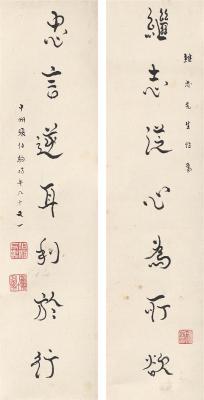 繼志從心為所欲
繼志先生法家
忠言逆耳利於行
中州張伯駒時年八十又一